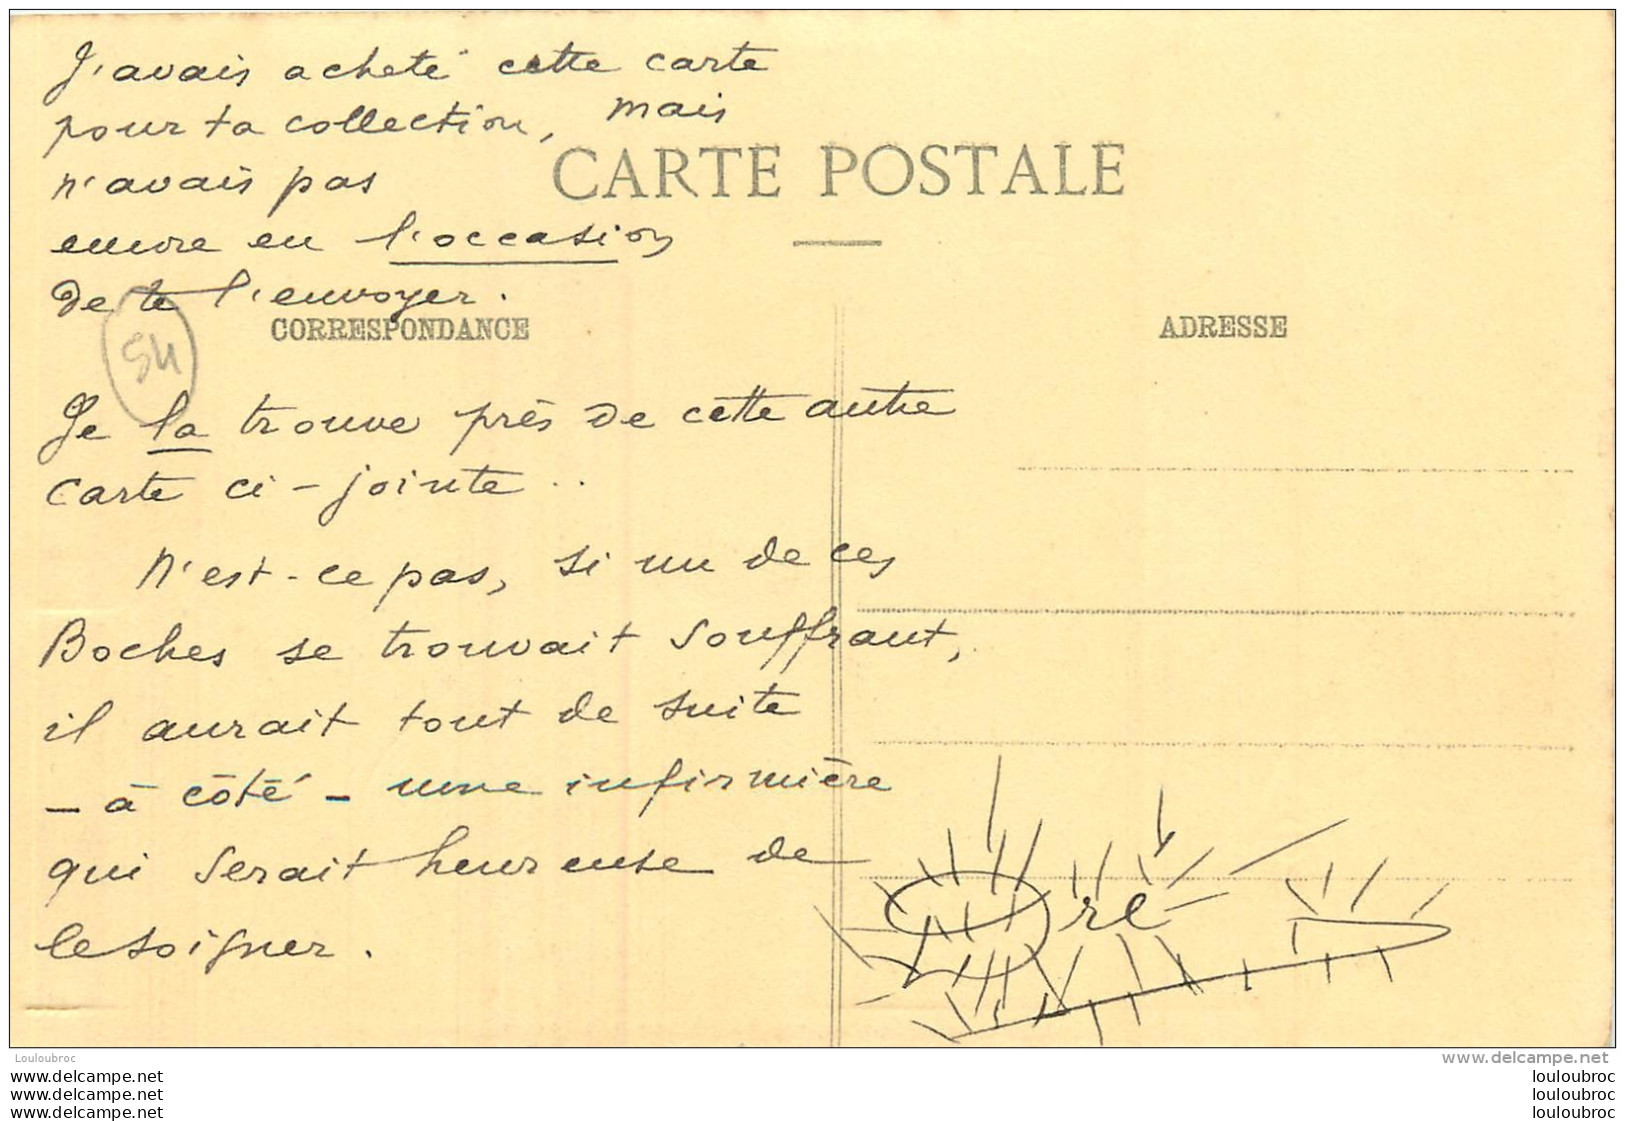 J'avais acheté cette carte
pour ta collection, mais
n'avais pas
CARTE POSTALE
encore eu l'occasion
de te l'envoyer.
CORRESPONDANCE
ADRESSE
54
Je la trouve près de cette autre
carte ci-jointe..
N'est-ce pas, si un de ces
Boches se trouvait souffrant,
il aurait tout de suite
- à côté - une infirmière
qui serait heureuse de
le soigner.
Louloubroc
www.delcampe.net
www.delcampe.net
louloubroc
www.delcampe.net
louloubroc
www.delcampe.net
louloubroc